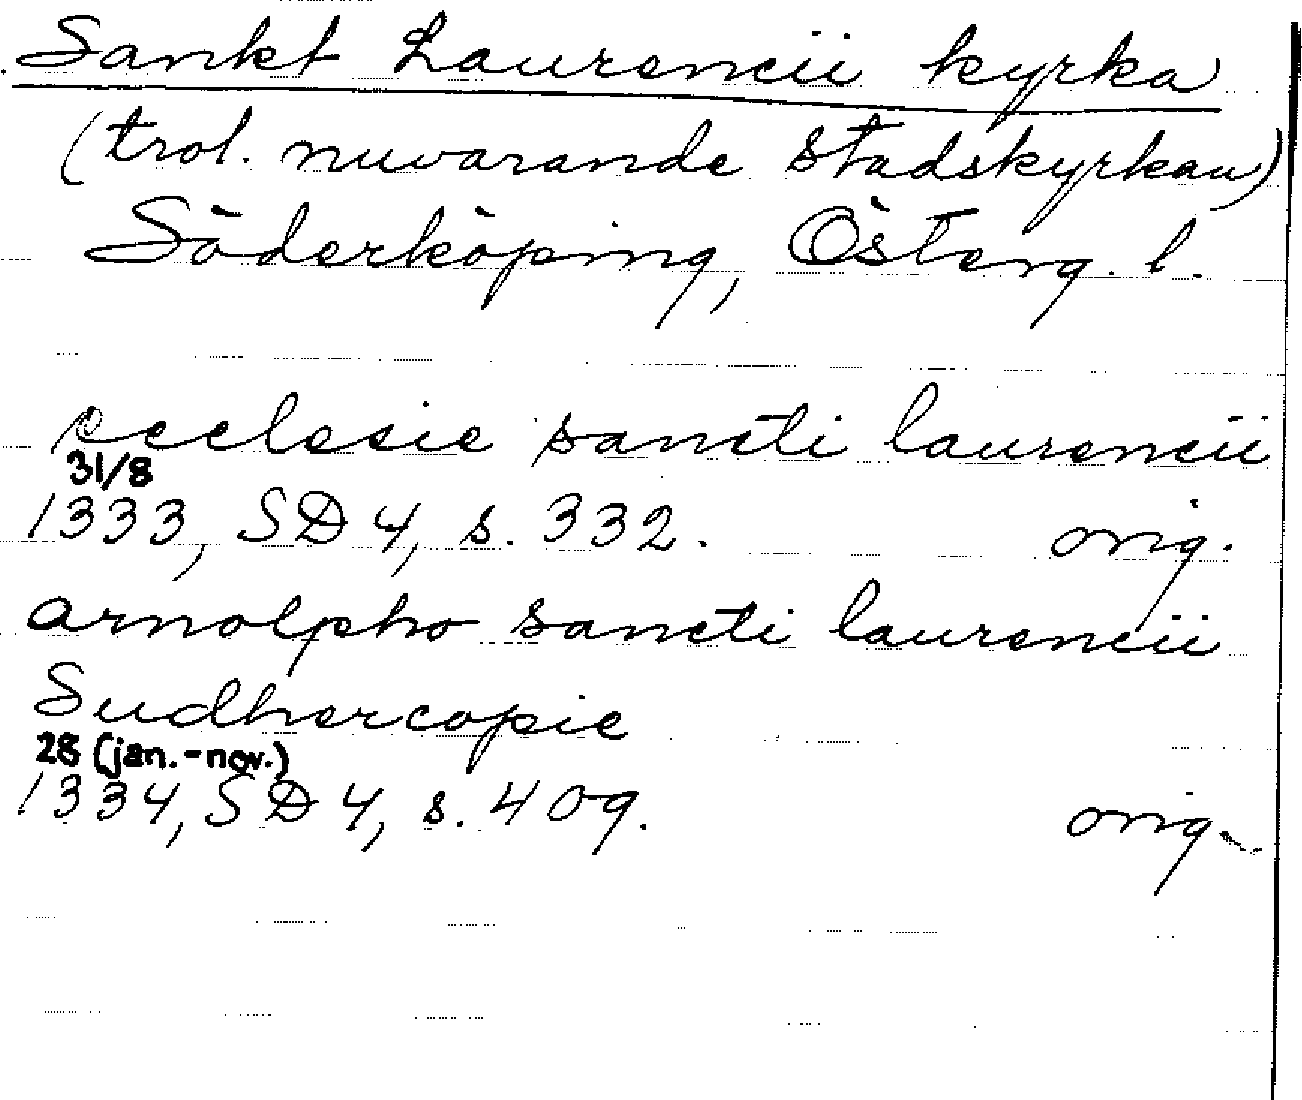 Sankt Laurencii kyrka
(trol. nuvarande stadskyrkan)
Söderköping, Österg. l.
ecclesie sancti laurencii
31/8
1333, SD 4, s. 332. orig.
arnolpho sancti laurencii
Sudhercopie
28 (jan.-nov.)
1334, SD 4, s. 409. orig.